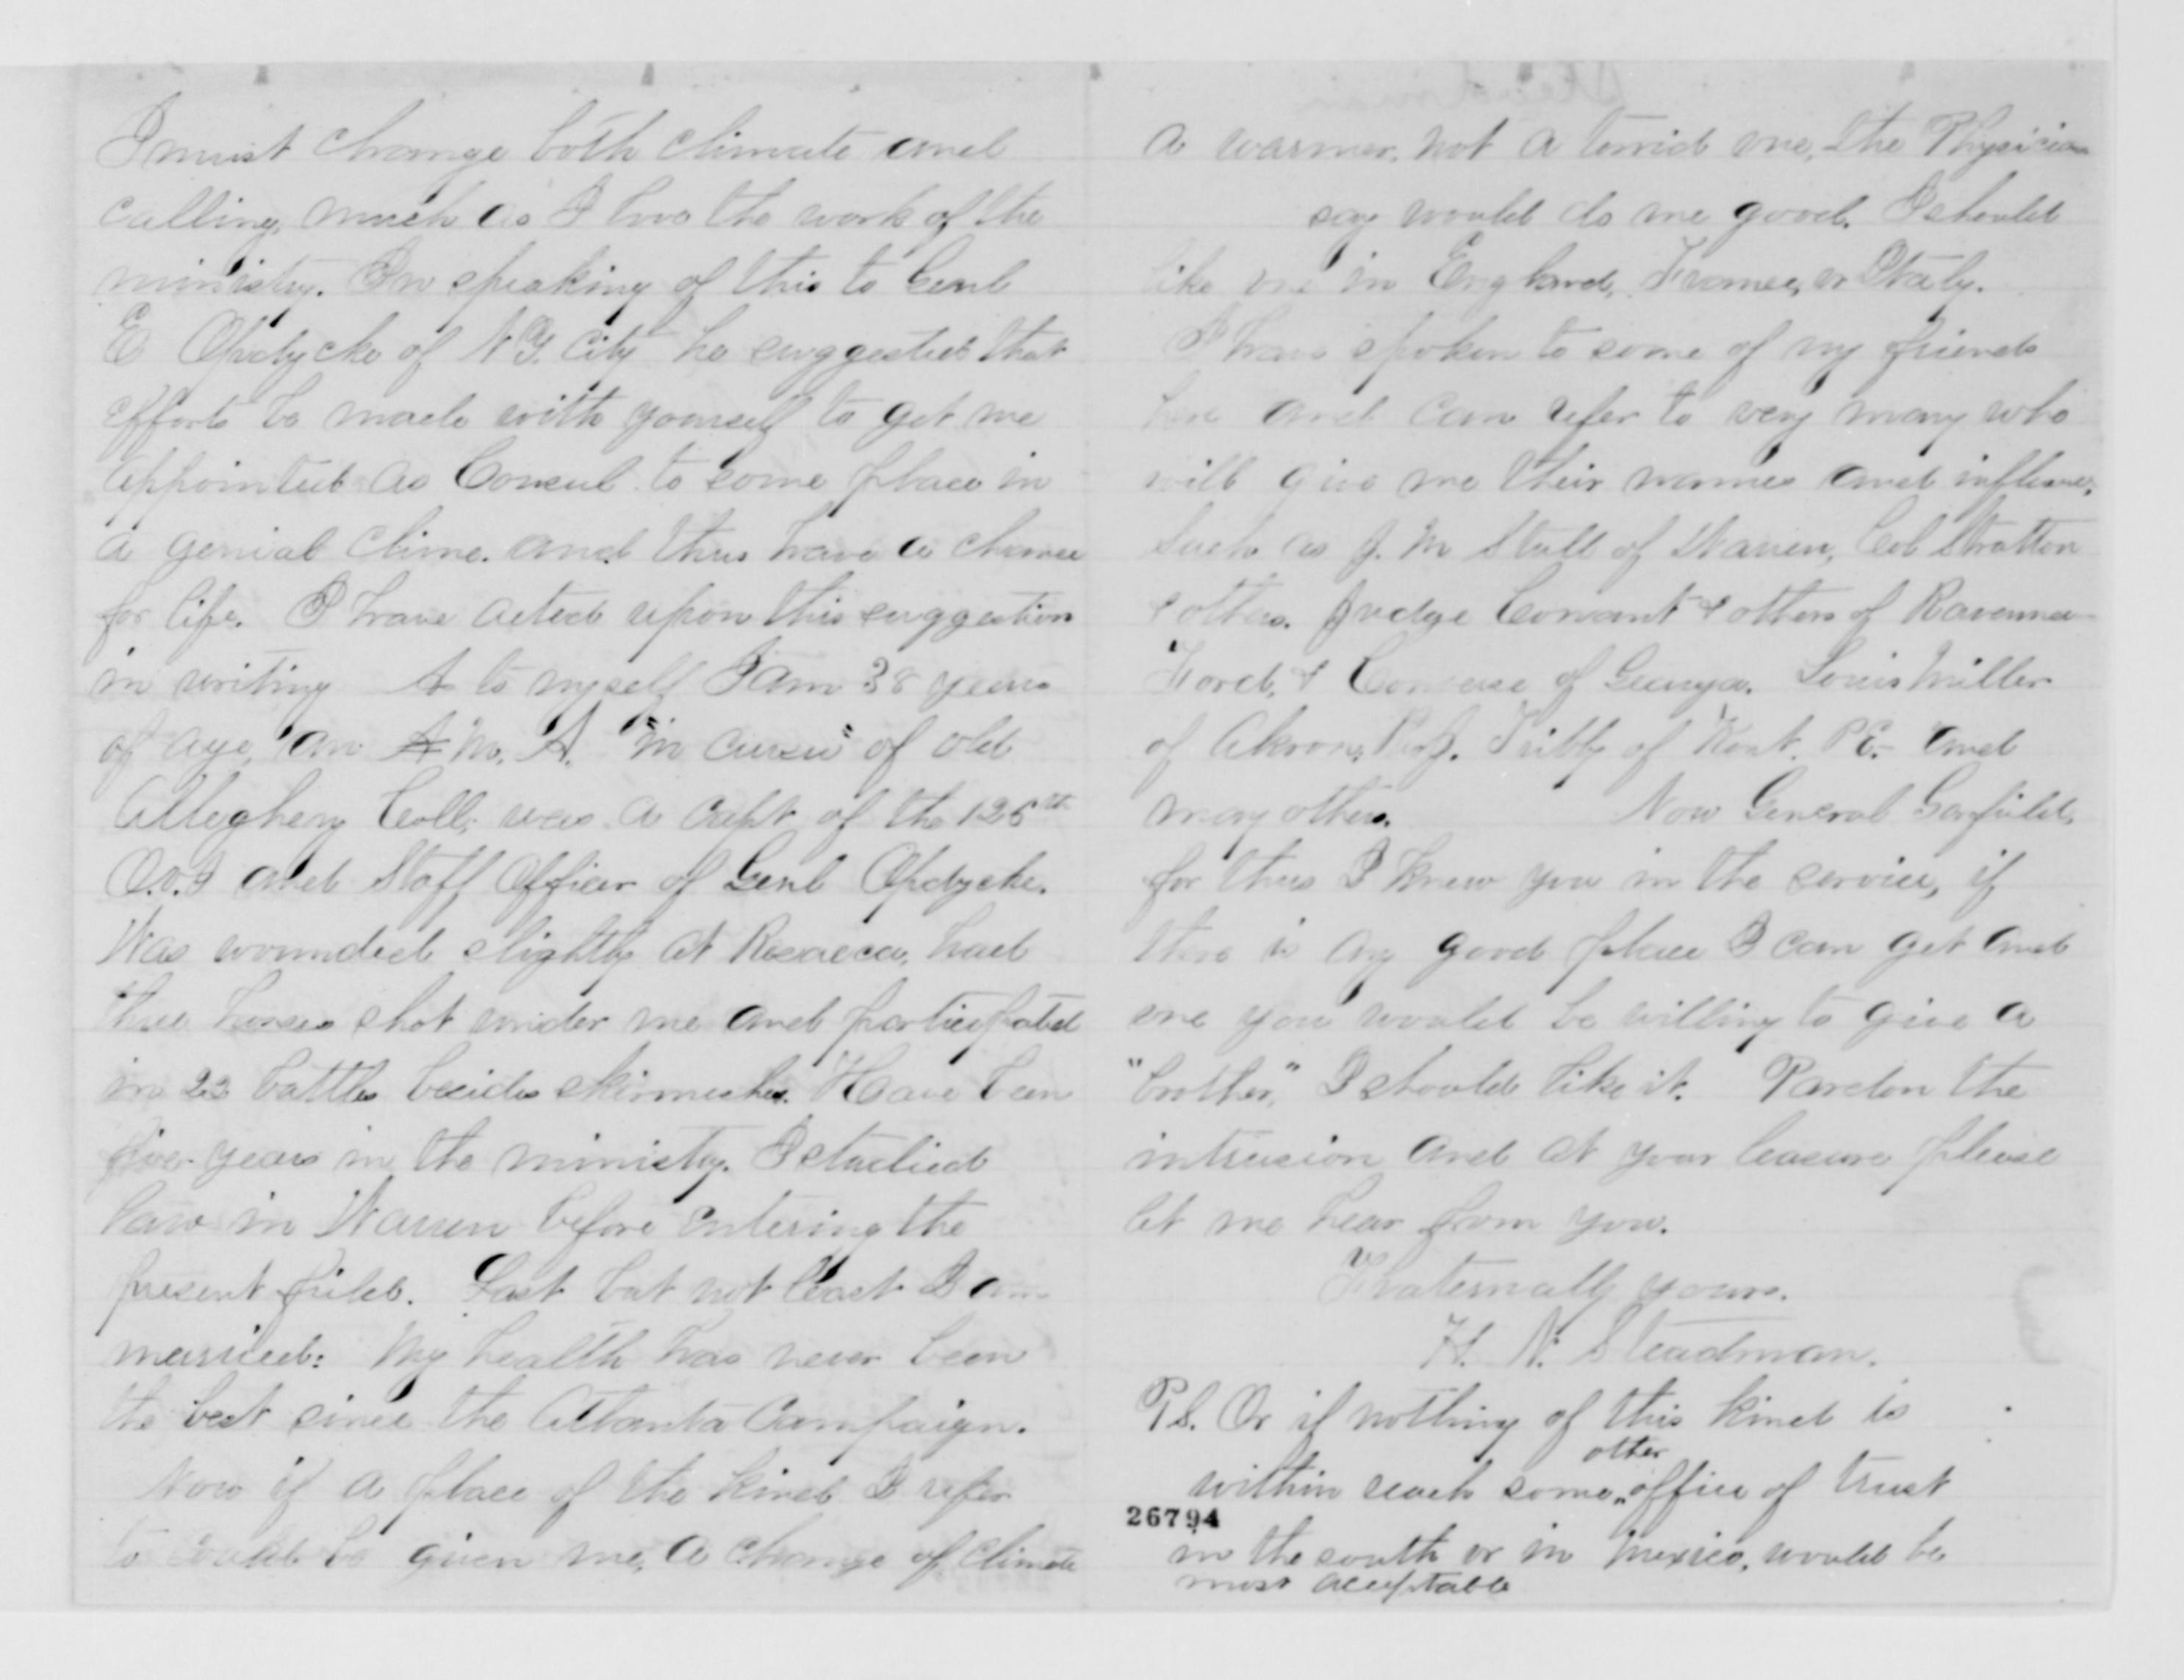 I must change both climate and
calling, much as I love the work of the
ministry. In speaking of this to Genl
E Opdycke of N.Y. City he suggested that
efforts be made with yourself to get me
appointed as Consul to some place in
a genial clime. and thus have a chance
for life. I have acted upon this suggestion
in writing As to myself I am 38 years
of age, an A M. A. "in cursu" of old
Allegheny Coll, was a Capt of the 125th
O.V.I and Staff Officer of Genl Opdycke.
Was wounded slightly at Resaca, had
three horses shot under me and participated
in 22 battles besides skirmishes. Have been
five years in the ministry. I studied
law in Warren before entering the
present field. Last but not least I am
married: My health has never been
the best since the Atlanta Campaign.
Now if a place of the kind I refer
to could be given me, a change of climate
a warmer, not a torrid one, the Physicians
say would do me good. I should
like one in England, France, or Italy.
I have spoken to some of my friends
here and can refer to very many who
will give me their names and influence,
Such as J. M Stull of Warren, Col Stratton
& others. Judge Conant & others of Ravenna
Ford, & Converse of Geauga. Louis Miller
of Akron, Prof. Tribby of Kent. P.E. and
many others. Now General Garfield,
for thus I knew you in the service, if
there is any good place I can get and
one you would be willing to give a
"brother," I should like it. Pardon the
intrusion and at your leasure please
let me hear from you.
Fraternally yours.
H. N. Steadman.
P.S. Or if nothing of this kind is
within reach some other office of trust
26794
in the south or in Mexico, would be
most acceptable